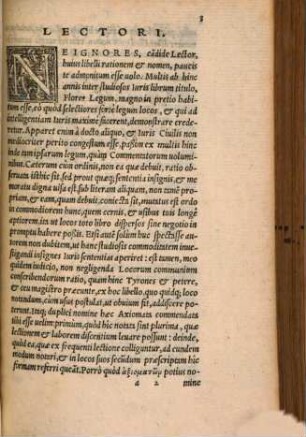 3
LECTORI.
NE IGNORES, cādide Lector,
huius libelli rationem & nomen, paucis
te admonitum esse uolo. Multis ab hinc
annis inter studiosos Iuris librum titulo,
Flores Legum, magno in pretio habi
tum esse, eò quòd selectiores ferè legum locos, & qui ad
intelligentiam Iuris maximè facerent, demonstrare crede
retur. Apparet enim à docto aliquo, & Iuris Ciuilis non
mediocriter perito congestum esse, passim ex multis hinc
inde tum ipsarum legum, quàm Commentorum uolumi
nibus. Cæterum cùm ordinis, non ea quæ debuit, ratio ob
seruata isthic sit, sed prout quæque sententia insignis, & me
moratu digna uisa est, sub literam aliquam, non tunc pro
priam, & eam, quam debuit, coniecta sit, mutatus est ordo
in commodiorem hunc, quem cernis, & usibus tuis longè
aptiorem, in ut locos toto libro dispersos sine negotio in
promptu habere possit. Etsi autē solùm huc spectasse an
norem non dubitem, ut hanc studiosis commoditatem inue
stigandi insignes Iuris sententias aperiret: est tamen, meo
quidem iudicio, non negligenda Locorum communium
conscribendorum ratio, quam hinc Tyrones & petere,
& ceu magistro præeunte, ex hoc libello, quo quidque loco
notandum, cùm usus postulat, ut obuium sit, addiscere po
terunt. Itaque duplici nomine hæc Axiomata commendata
tibi esse uelim primùm, quòd hic notes sint plurima, quæ
lectionem & laborem discentium leuare possunt: deinde,
quòd ea, quæ ex frequenti lectione colliguntur, ad eundem
modum notari, & in locos suos secūdum præscriptum hic
formam referri queāt. Porrò quòd ἀξιωμάτων potius no-
a 2 mine